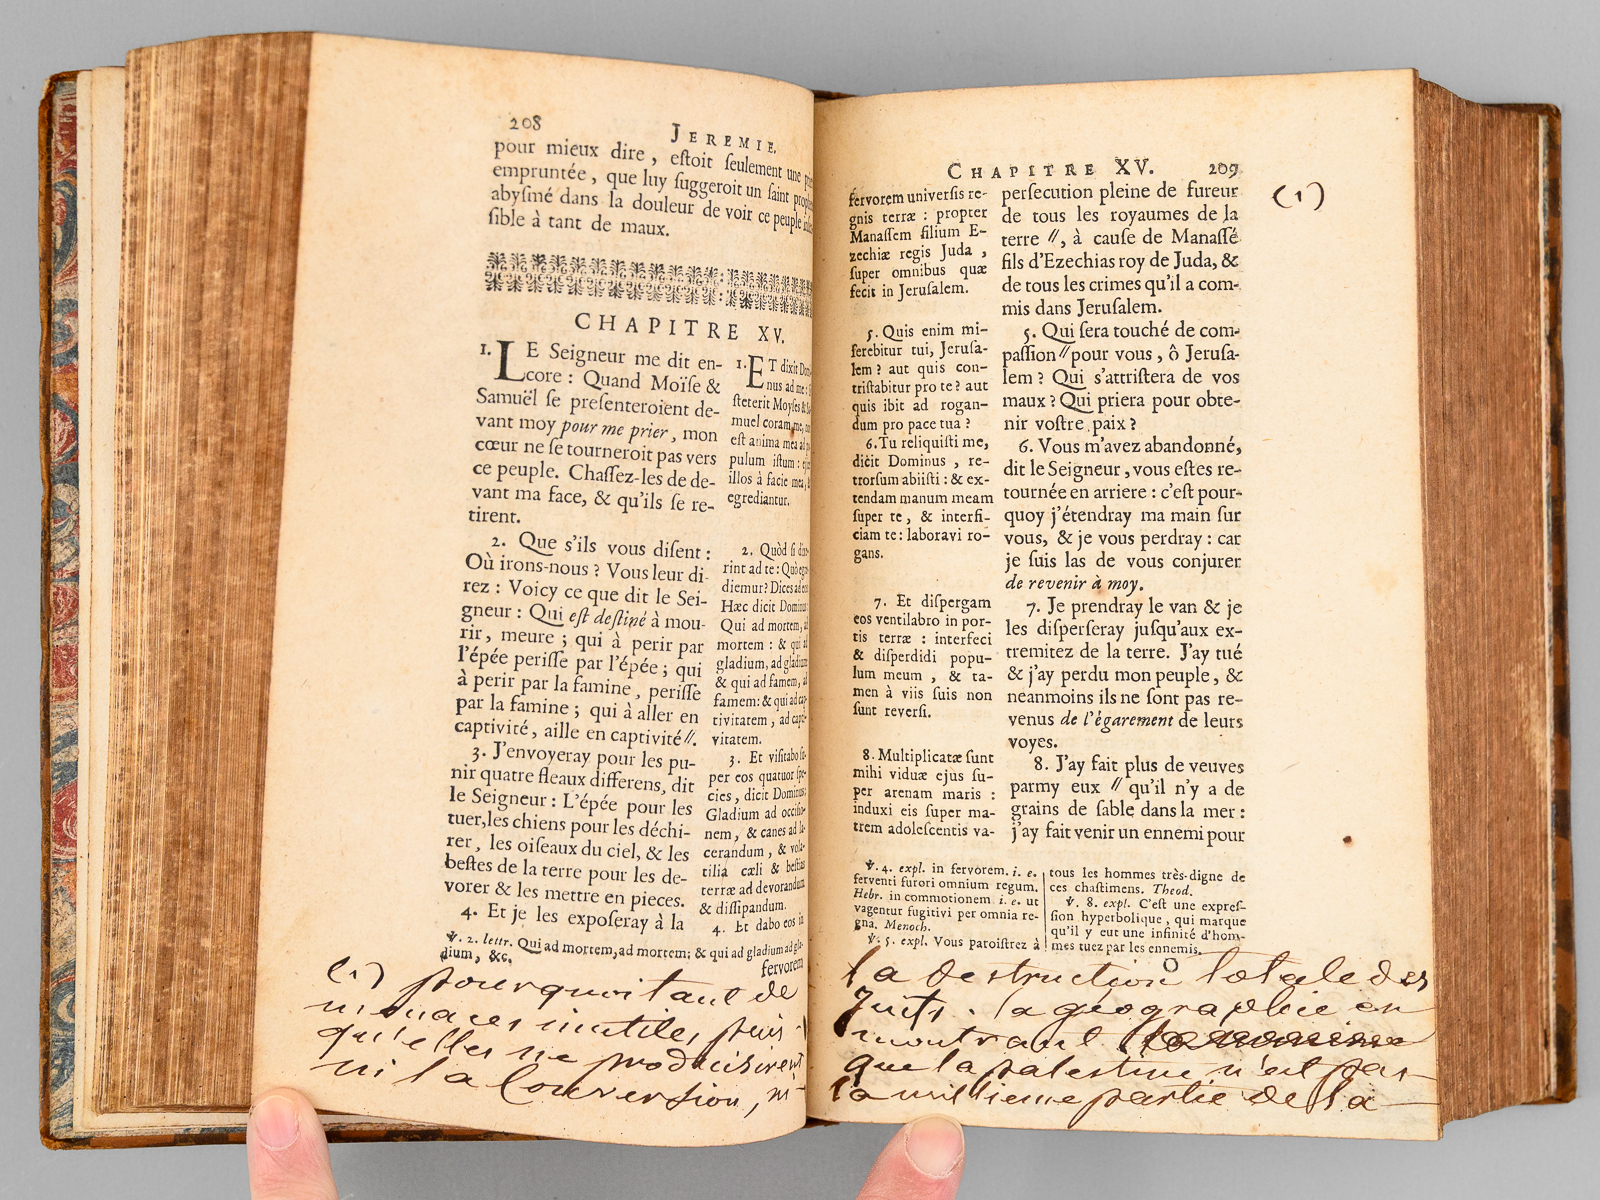 208
JEREMIE.
pour mieux dire, eſtoit ſeulement une
empruntée, que luy ſuggeroit un ſaint
abyſmé dans la douleur de voir ce peuple
ſible à tant de maux.
CHAPITRE XV.
1. LE Seigneur me dit en-
core : Quand Moïſe &
Samuël ſe preſenteroient de-
vant moy pour me prier, mon
cœur ne ſe tourneroit pas vers
ce peuple. Chaſſez-les de de-
vant ma face, & qu'ils ſe re-
tirent.
2. Que s'ils vous diſent :
Où irons-nous ? Vous leur di-
rez : Voicy ce que dit le Sei-
gneur : Qui eſt deſtiné à mou-
rir, meure ; qui à perir par
l'épée periſſe par l'épée ; qui
à perir par la famine, periſſe
par la famine ; qui à aller en
captivité, aille en captivité //.
3. J'envoyeray pour les pu-
nir quatre fleaux differens, dit
le Seigneur : L'épée pour les
tuer, les chiens pour les déchi-
rer, les oiſeaux du ciel, & les
beſtes de la terre pour les de-
vorer & les mettre en pieces.
4. Et je les expoſeray à la
1. ET dixit
nus ad me :
ſteterit Moyſes &
muel coram me,
eſt anima mea ad
pulum iſtum :
illos à facie mea,
egrediantur.
2. Quòd ſi
rint ad te : Quò
diemur ? Dices ad
Hæc dicit Dominus:
Qui ad mortem, ad
mortem : & qui ad
gladium, ad gladium
& qui ad famem, ad
famem: & qui ad cap-
tivitatem, ad capti-
vitatem.
3. Et viſitabo ſu-
per eos quatuor ſpe-
cies, dicit Dominus:
Gladium ad occiſio-
nem, & canes ad la-
cerandum, & vola-
tilia cæli & beſtias
terræ ad devorandum
& diſſipandum.
4. Et dabo eos in
℣. 2. lettr. Qui ad mortem, ad mortem; & qui ad gladium ad gla-
dium, &c.
fervorem
(1) pourquoi tant de
menaces inutiles, puis
qu'elles ne produisirent
ni la Conversion, ni
CHAPITRE XV. 209
(1)
fervorem univerſis re-
gnis terræ : propter
Manaſſem filium E-
zechiæ regis Juda,
ſuper omnibus quæ
fecit in Jeruſalem.
5. Quis enim mi-
ferebitur tui, Jeruſa-
lem ? aut quis con-
triſtabitur pro te ? aut
quis ibit ad rogan-
dum pro pace tua ?
6. Tu reliquiſti me,
dicit Dominus, re-
trorſum abiiſti : & ex-
tendam manum meam
ſuper te, & interfi-
ciam te : laboravi ro-
gans.
7. Et diſpergam
eos ventilabro in por-
tis terræ : interfeci
& diſperdidi popu-
lum meum, & ta-
men à viis ſuis non
ſunt reverſi.
8. Multiplicatæ ſunt
mihi viduæ ejus ſu-
per arenam maris :
induxi eis ſuper ma-
trem adoleſcentis va-
perſecution pleine de fureur
de tous les royaumes de la
terre //, à cauſe de Manaſſé
fils d'Ezechias roy de Juda, &
de tous les crimes qu'il a com-
mis dans Jeruſalem.
5. Qui ſera touché de com-
paſſion // pour vous, ô Jeruſa-
lem ? Qui s'attriſtera de vos
maux ? Qui priera pour obte-
nir voſtre paix ?
6. Vous m'avez abandonné,
dit le Seigneur, vous eſtes re-
tournée en arriere : c'eſt pour-
quoy j'étendray ma main ſur
vous, & je vous perdray : car
je ſuis las de vous conjurer
de revenir à moy.
7. Je prendray le van & je
les diſperſeray juſqu'aux ex-
tremitez de la terre. J'ay tué
& j'ay perdu mon peuple, &
neanmoins ils ne ſont pas re-
venus de l'égarement de leurs
voyes.
8. J'ay fait plus de veuves
parmy eux // qu'il n'y a de
grains de ſable dans la mer :
j'ay fait venir un ennemi pour
℣. 4. expl. in fervorem. i. e.
ferventi furori omnium regum.
Hebr. in commotionem i. e. ut
vagentur fugitivi per omnia re-
gna. Menoch.
℣. 5. expl. Vous paroiſtrez à
tous les hommes très-digne de
ces chaſtimens. Theod.
℣. 8. expl. C'eſt une expreſ-
ſion hyperbolique, qui marque
qu'il y eut une infinité d'hom-
mes tuez par les ennemis.
O
la destruction totale des
Juifs. la géographie en
montrant
que la palestine n'est pas
la millieme partie de la